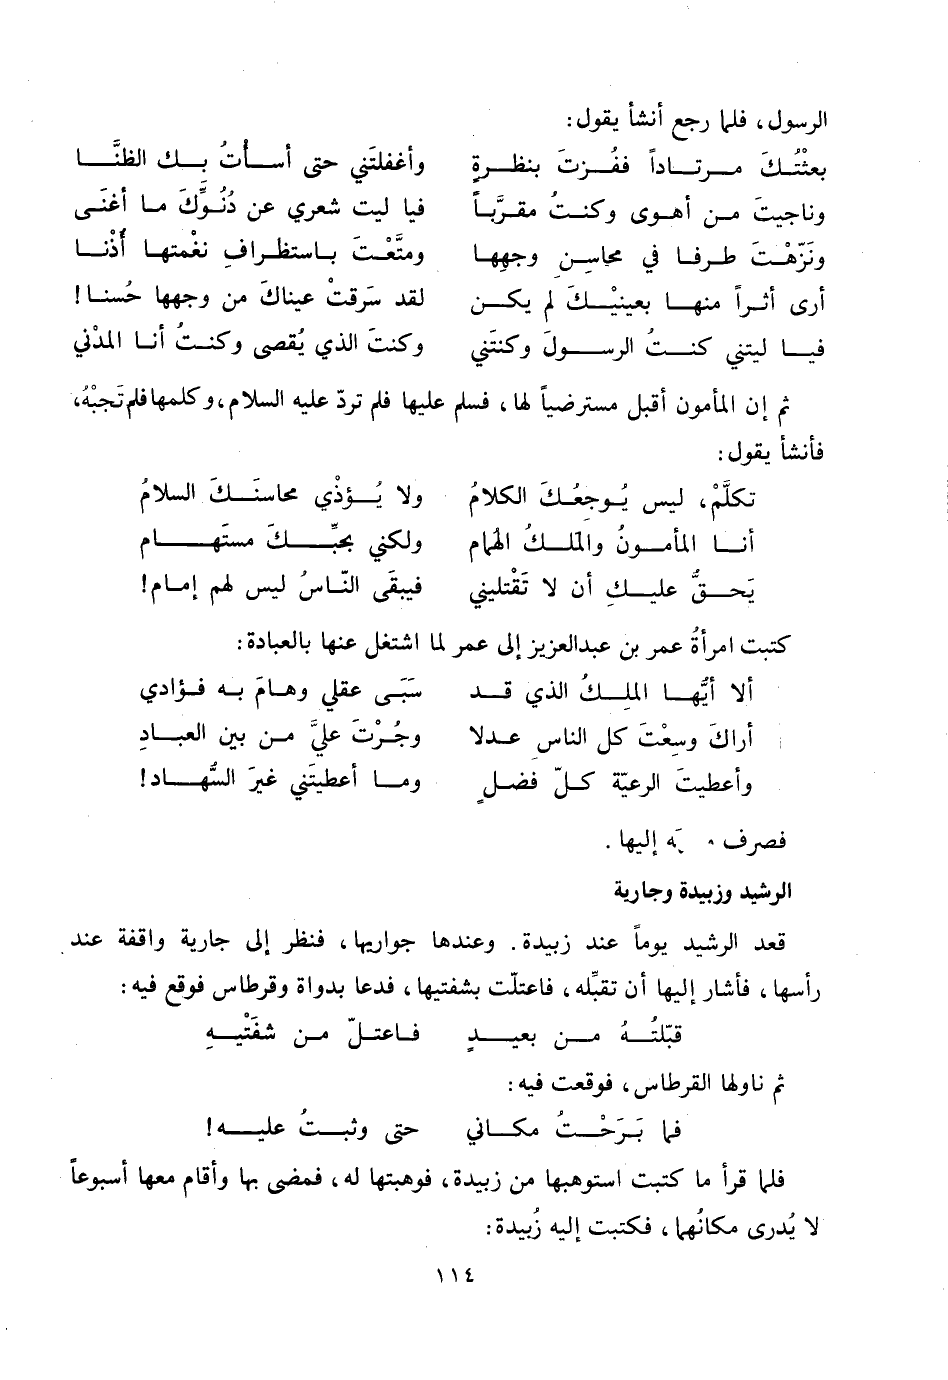 الرسول، فلما رجع أنشأ يقول:
بعثتُكَ مرتاداً ففزتَ بنظرةٍ وأغفلتَني حتى أسأتُ بك الظنَّا
وناجيتَ من أهوى وكنتَ مقرَّباً فيا ليت شعري عن دُنُوِّكَ ما أغنَى
ونَزَّهْتَ طرفا في محاسنِ وجهها ومتَّعْتَ باستظرافِ نغْمتها أُذْنا
أرى أثراً منها بعينيْكَ لم يكن لقد سَرقتْ عيناكَ من وجهها حُسنا!
فيا ليتني كنتُ الرسولَ وكنتَني وكنتَ الذي يُقصى وكنتُ أنا المدْني
ثم إن المأمون أقبل مسترضياً لها، فسلم عليها فلم تردّ عليه السلام، وكلمها فلم تَجبْهُ،
فأنشأ يقول:
تكلَّمْ، ليس يُوجعُكَ الكلامُ ولا يُؤذْي محاسنَكَ السلامُ
أنا المأمونُ والملكُ الهمام ولكني بحبِّكَ مستَهام
يَحقُّ عليكِ أن لا تَقْتليني فيبقَى النَّاسُ ليس لهم إمام!
كتبت امرأةُ عمر بن عبدالعزيز إلى عمر لما اشتغل عنها بالعبادة:
ألا أيُّها الملكُ الذي قد سَبَى عقلي وهامَ به فؤادي
أراكَ وسِعْتَ كل الناس عدلا وجُرْتَ عليَّ من بين العبادِ
وأعطيتَ الرعيّة كلّ فضلٍ وما أعطيتَني غيرَ السُّهاد!
فصرف إليها.
الرشيد وزبيدة وجارية
قعد الرشيد يوماً عند زبيدة. وعندها جواريها، فنظر إلى جارية واقفة عند
رأسها، فأشار إليها أن تقبِّله، فاعتلّت بشفتيها، فدعا بدواة وقرطاس فوقع فيه:
قبّلتُهُ من بعيدٍ فاعتلّ من شفَتْيه
ثم ناولها القرطاس، فوقعت فيه:
فما بَرَحْتُ مكاني حتى وثبتُ عليه!
فلما قرأ ما كتبت استوهبها من زبيدة، فوهبتها له، فمضى بها وأقام معها أسبوعاً
لا يُدرى مكانُها، فكتبت إليه زُبيدة:
١١٤